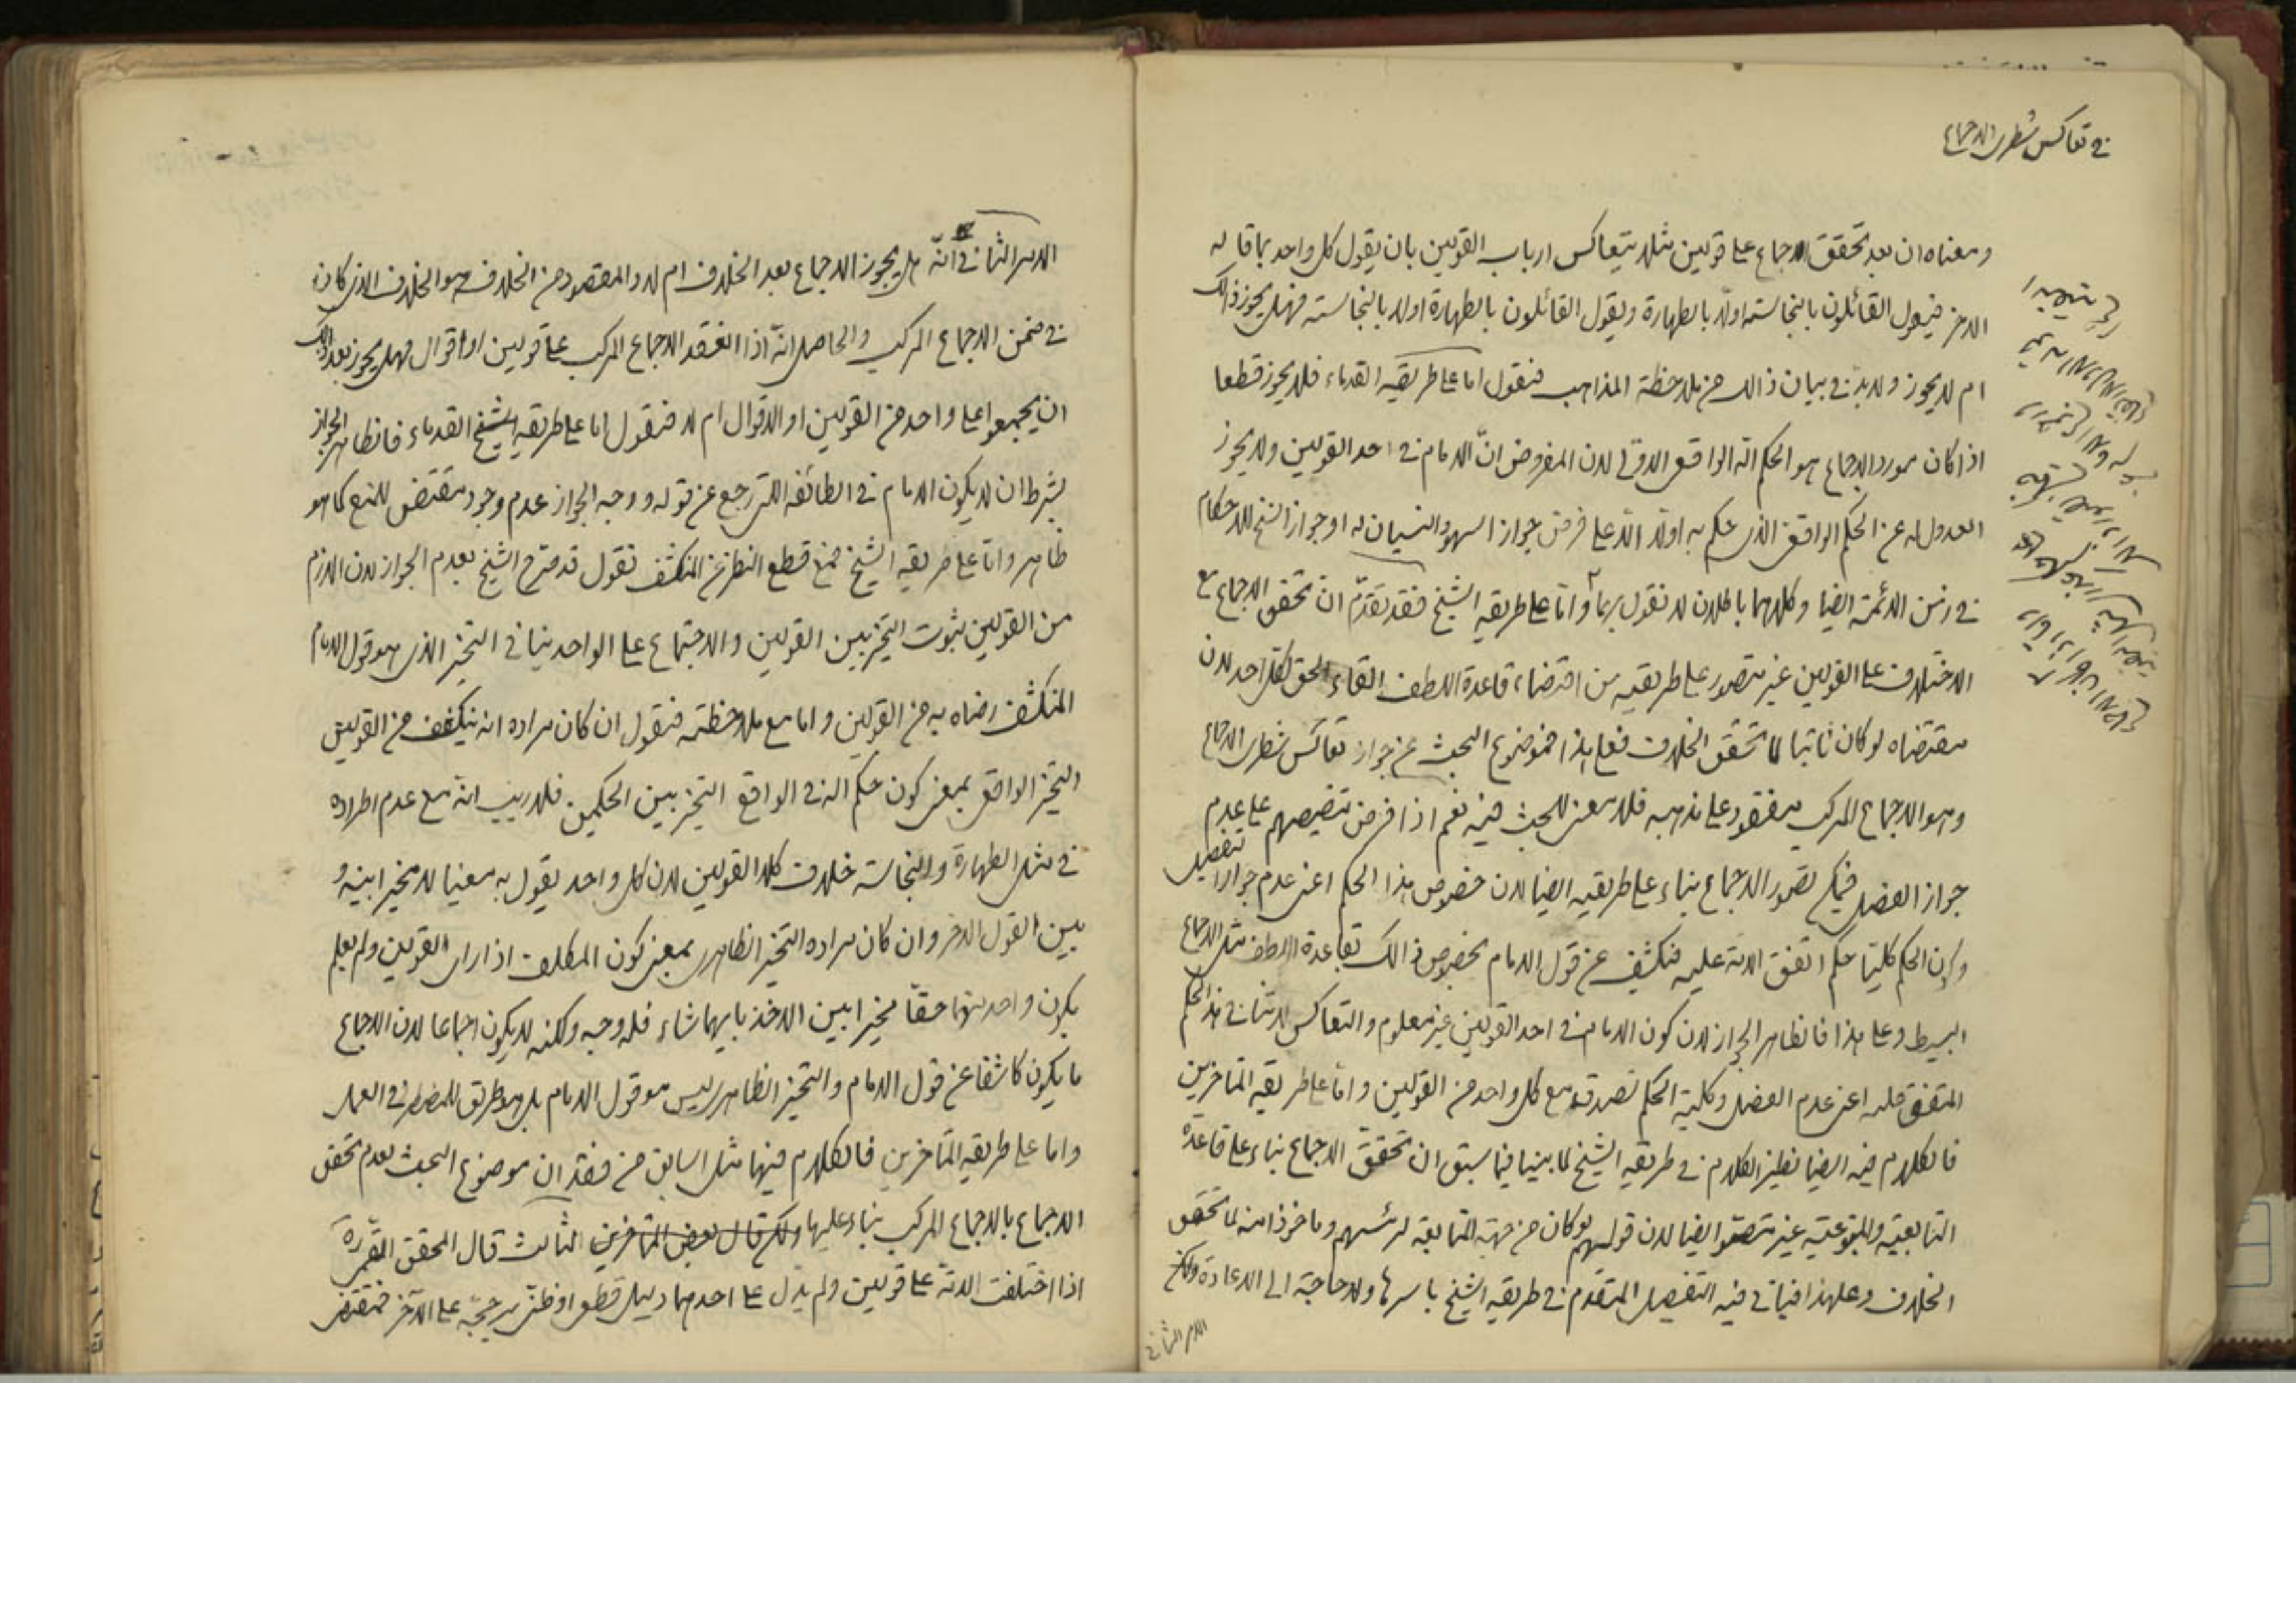 في تعاكس شطري الاجماع
ومعناه ان بعد تحقق الاجماع على قولين مثلا يتعاكس ارباب القولين بان يقول كل واحد بما قاله
الاخر فيقول القائلون بالنجاسة اولا بالطهارة ويقول القائلون بالطهارة اولا بالنجاسة فهل يجوز ذالك
ام لا يجوز ولا بد في بيان ذالك من ملاحظة المذاهب فنقول اما على طريقة القدماء فلا يجوز قطعا
اذا كان مورد الاجماع هو الحكم الواقعي لان المفروض ان الامام في احد القولين ولا يجوز
العدول له عن الحكم الواقعي الذي حكم به اولا الا على فرض جواز السهو والنسيان له او جواز النسخ للاحكام
في زمن الائمة ايضا وكلاهما باطلان لا نقول بهما واما على طريقة الشيخ فقد تقدم ان تحقق الاجماع مع
الاختلاف على القولين غير متصور على طريقته من اقتضاء قاعدة اللطف القاء الحق لكل احد لان
مقتضاه لو كان ثابتا لما تحقق الخلاف فعلى هذا فموضوع البحث عن جواز تعاكس شطري الاجماع
وهو الاجماع المركب مفقود على مذهبه فلا معنى للبحث فيه نعم اذا فرض تنصيصهم على عدم
جواز الفصل فيمكن تصور الاجماع بناء على طريقته ايضا لان خصوص هذا الحكم اعني عدم جواز التفصيل
وكون الحكم كليا حكم اتفق الامة عليه فنكشف عن قول الامام بخصوص ذالك بقاعدة اللطف مثل الاجماع
البسيط وعلى هذا فالظاهر الجواز لان كون الامام في احد القولين غير معلوم والتعاكس لا ينافي هذا الحكم
المتفق عليه اعني عدم الفصل وكلية الحكم لصدقه مع كل واحد من القولين واما على طريقة المتاخرين
فالكلام فيه ايضا نظير الكلام في طريقة الشيخ لما بينا فيما سبق ان تحقق الاجماع بناء على قاعدة
التابعية والمتبوعية غير متصور ايضا لان قوليهم لو كان من جهة المتابعة لرئيسهم وماخوذا منه لما تحقق
الخلاف وعلى هذا فياتي فيه التفصيل المتقدم في طريقة الشيخ باسرها ولا حاجة الى الاعادة
الامر الثاني
الامر الثاني في انه هل يجوز الاجماع بعد الخلاف ام لا والمقصود من الخلاف هو الخلاف الذي كان
في ضمن الاجماع المركب والحاصل انه اذا انعقد الاجماع المركب على قولين او اقوال فهل يجوز بعد ذالك
ان يجمعوا على واحد من القولين او الاقوال ام لا فنقول اما على طريقة القدماء فالظاهر الجواز
بشرط ان لا يكون الامام في الطائفة التي رجع عن قوله ووجه الجواز عدم وجود مقتضى للمنع كما هو
ظاهر واما على طريقة الشيخ فمع قطع النظر عن المنكشف نقول قد صرح الشيخ بعدم الجواز لان اللازم
من القولين ثبوت التخيير بين القولين والاجتماع على الواحد ينافي التخيير الذي هو قول الامام
المنكشف رضاه به من القولين واما مع ملاحظته فنقول ان كان مراده انه ينكشف من القولين
التخيير الواقعي بمعنى كون حكم الله في الواقع التخيير بين الحكمين فلا ريب انه مع عدم اطراده
في مثل الطهارة والنجاسة خلاف كلا القولين لان كل واحد يقول به معينا لا مخيرا بينه و
بين القول الاخر وان كان مراده التخيير الظاهري بمعنى كون المكلف اذا راى القولين ولم يعلم
بكون واحد منهما حقا مخيرا بين الاخذ بايهما شاء فله وجه ولكنه لا يكون اجماعا لان الاجماع
ما يكون كاشفا عن قول الامام والتخيير الظاهري ليس هو قول الامام بل هو طريق للمضطر في العمل
واما على طريقة المتاخرين فالكلام فيها مثل السابق من فقدان موضوع البحث بعدم تحقق
الاجماع بالاجماع المركب بناء عليها ولكن قال بعض المتاخرين الثالث قال المحقق القمي ره
اذا اختلفت الامة على قولين ولم يدل على احدهما دليل قطعي او ظني يرجحه على الاخر فمقتضى